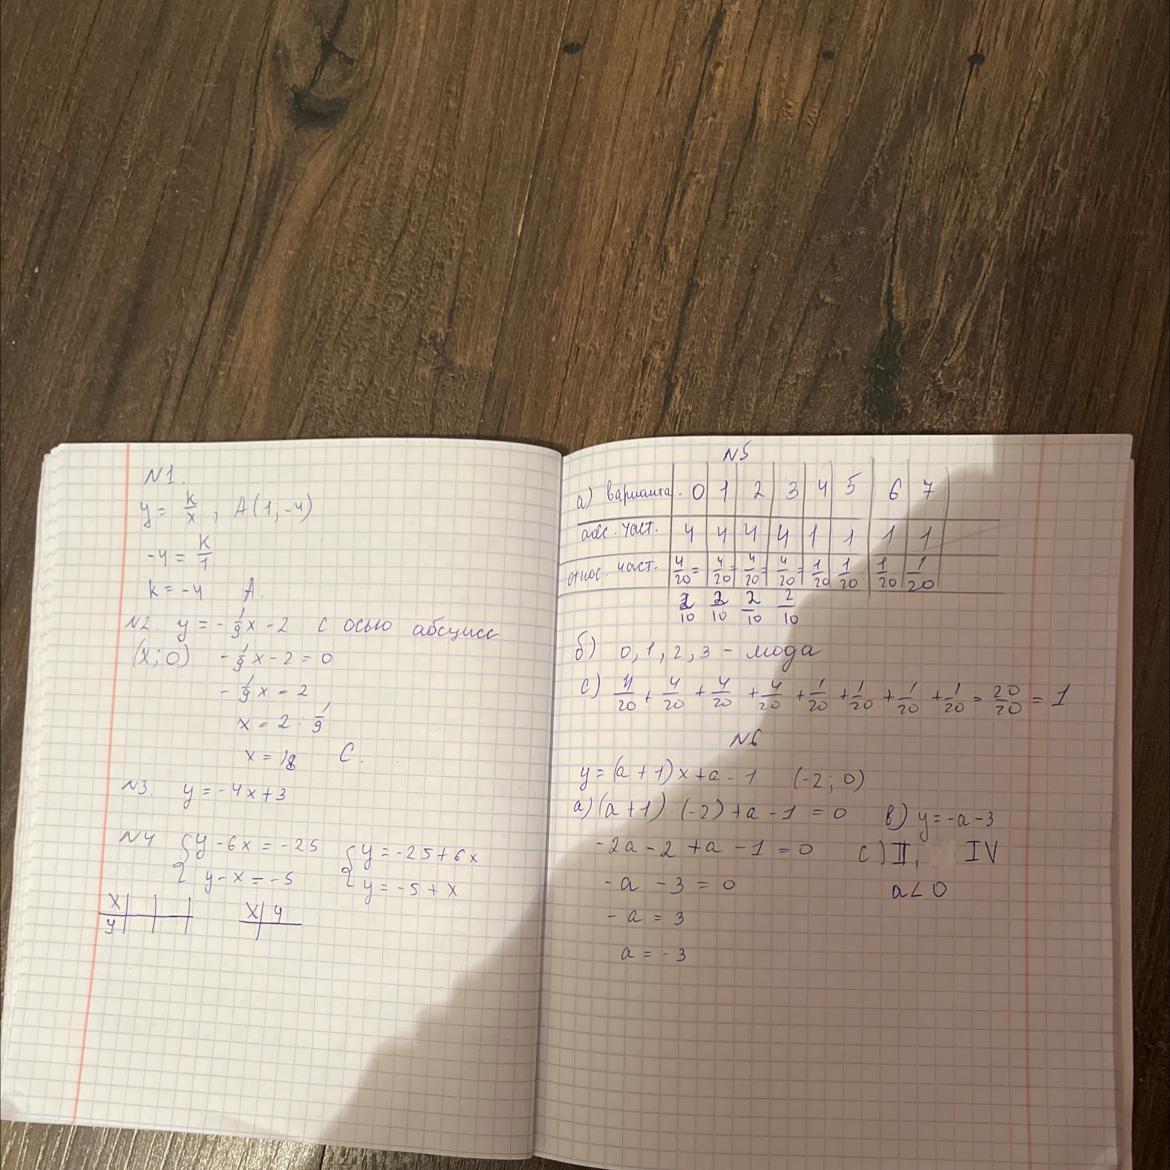 N1.
y = k/x, A(1,-4)
-4 = k/1
k = -4 A.
N2. y = -1/9x - 2 с осью абсцисс
(x; 0) -1/9x - 2 = 0
-1/9x = 2
x = 2 : 1/9
x = 18 C.
N3. y = -4x+3
N4 { y - 6x = -25 { y = -25+6x
y - x = -5 y = -5 + x
x
y
x y
N5
а) варианта. 0 1 2 3 4 5 6 7
абс. част. 4 4 4 4 1 1 1 1
относ. част. 4/20= 4/20= 4/20= 4/20= 1/20 1/20 1/20 1/20
2/10 2/10 2/10 2/10
б) 0, 1, 2, 3 - мода
c) 4/20 + 4/20 + 4/20 + 4/20 + 1/20 + 1/20 + 1/20 + 1/20 = 20/20 = 1
N6
y = (a + 1)x + a - 1 (-2; 0)
a) (a+1) · (-2) + a - 1 = 0
-2a - 2 + a - 1 = 0
-a - 3 = 0
-a = 3
a = -3
в) y = -a - 3
c) II, IV
a < 0